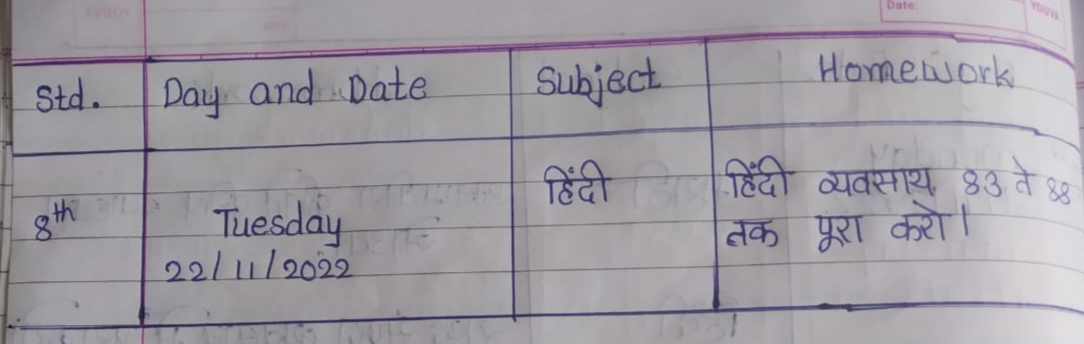 Date:
YOUVA
Std. Day and Date Subject Homework
8th Tuesday हिंदी हिंदी व्यवसाय. 83 ते 88
22/11/2022 तक पूरा करो।